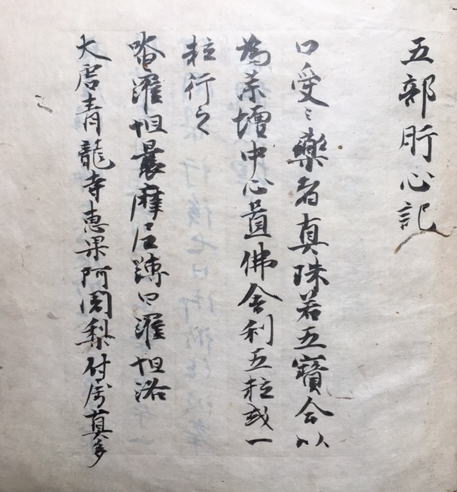 五部肝心記
口受〻藥者真珠若五寶合以
為茶壇中心置佛舍利五粒或一
粒行之
唵羅怛曩摩尼縛日羅怛洛
大唐青龍寺惠果阿闍梨付属